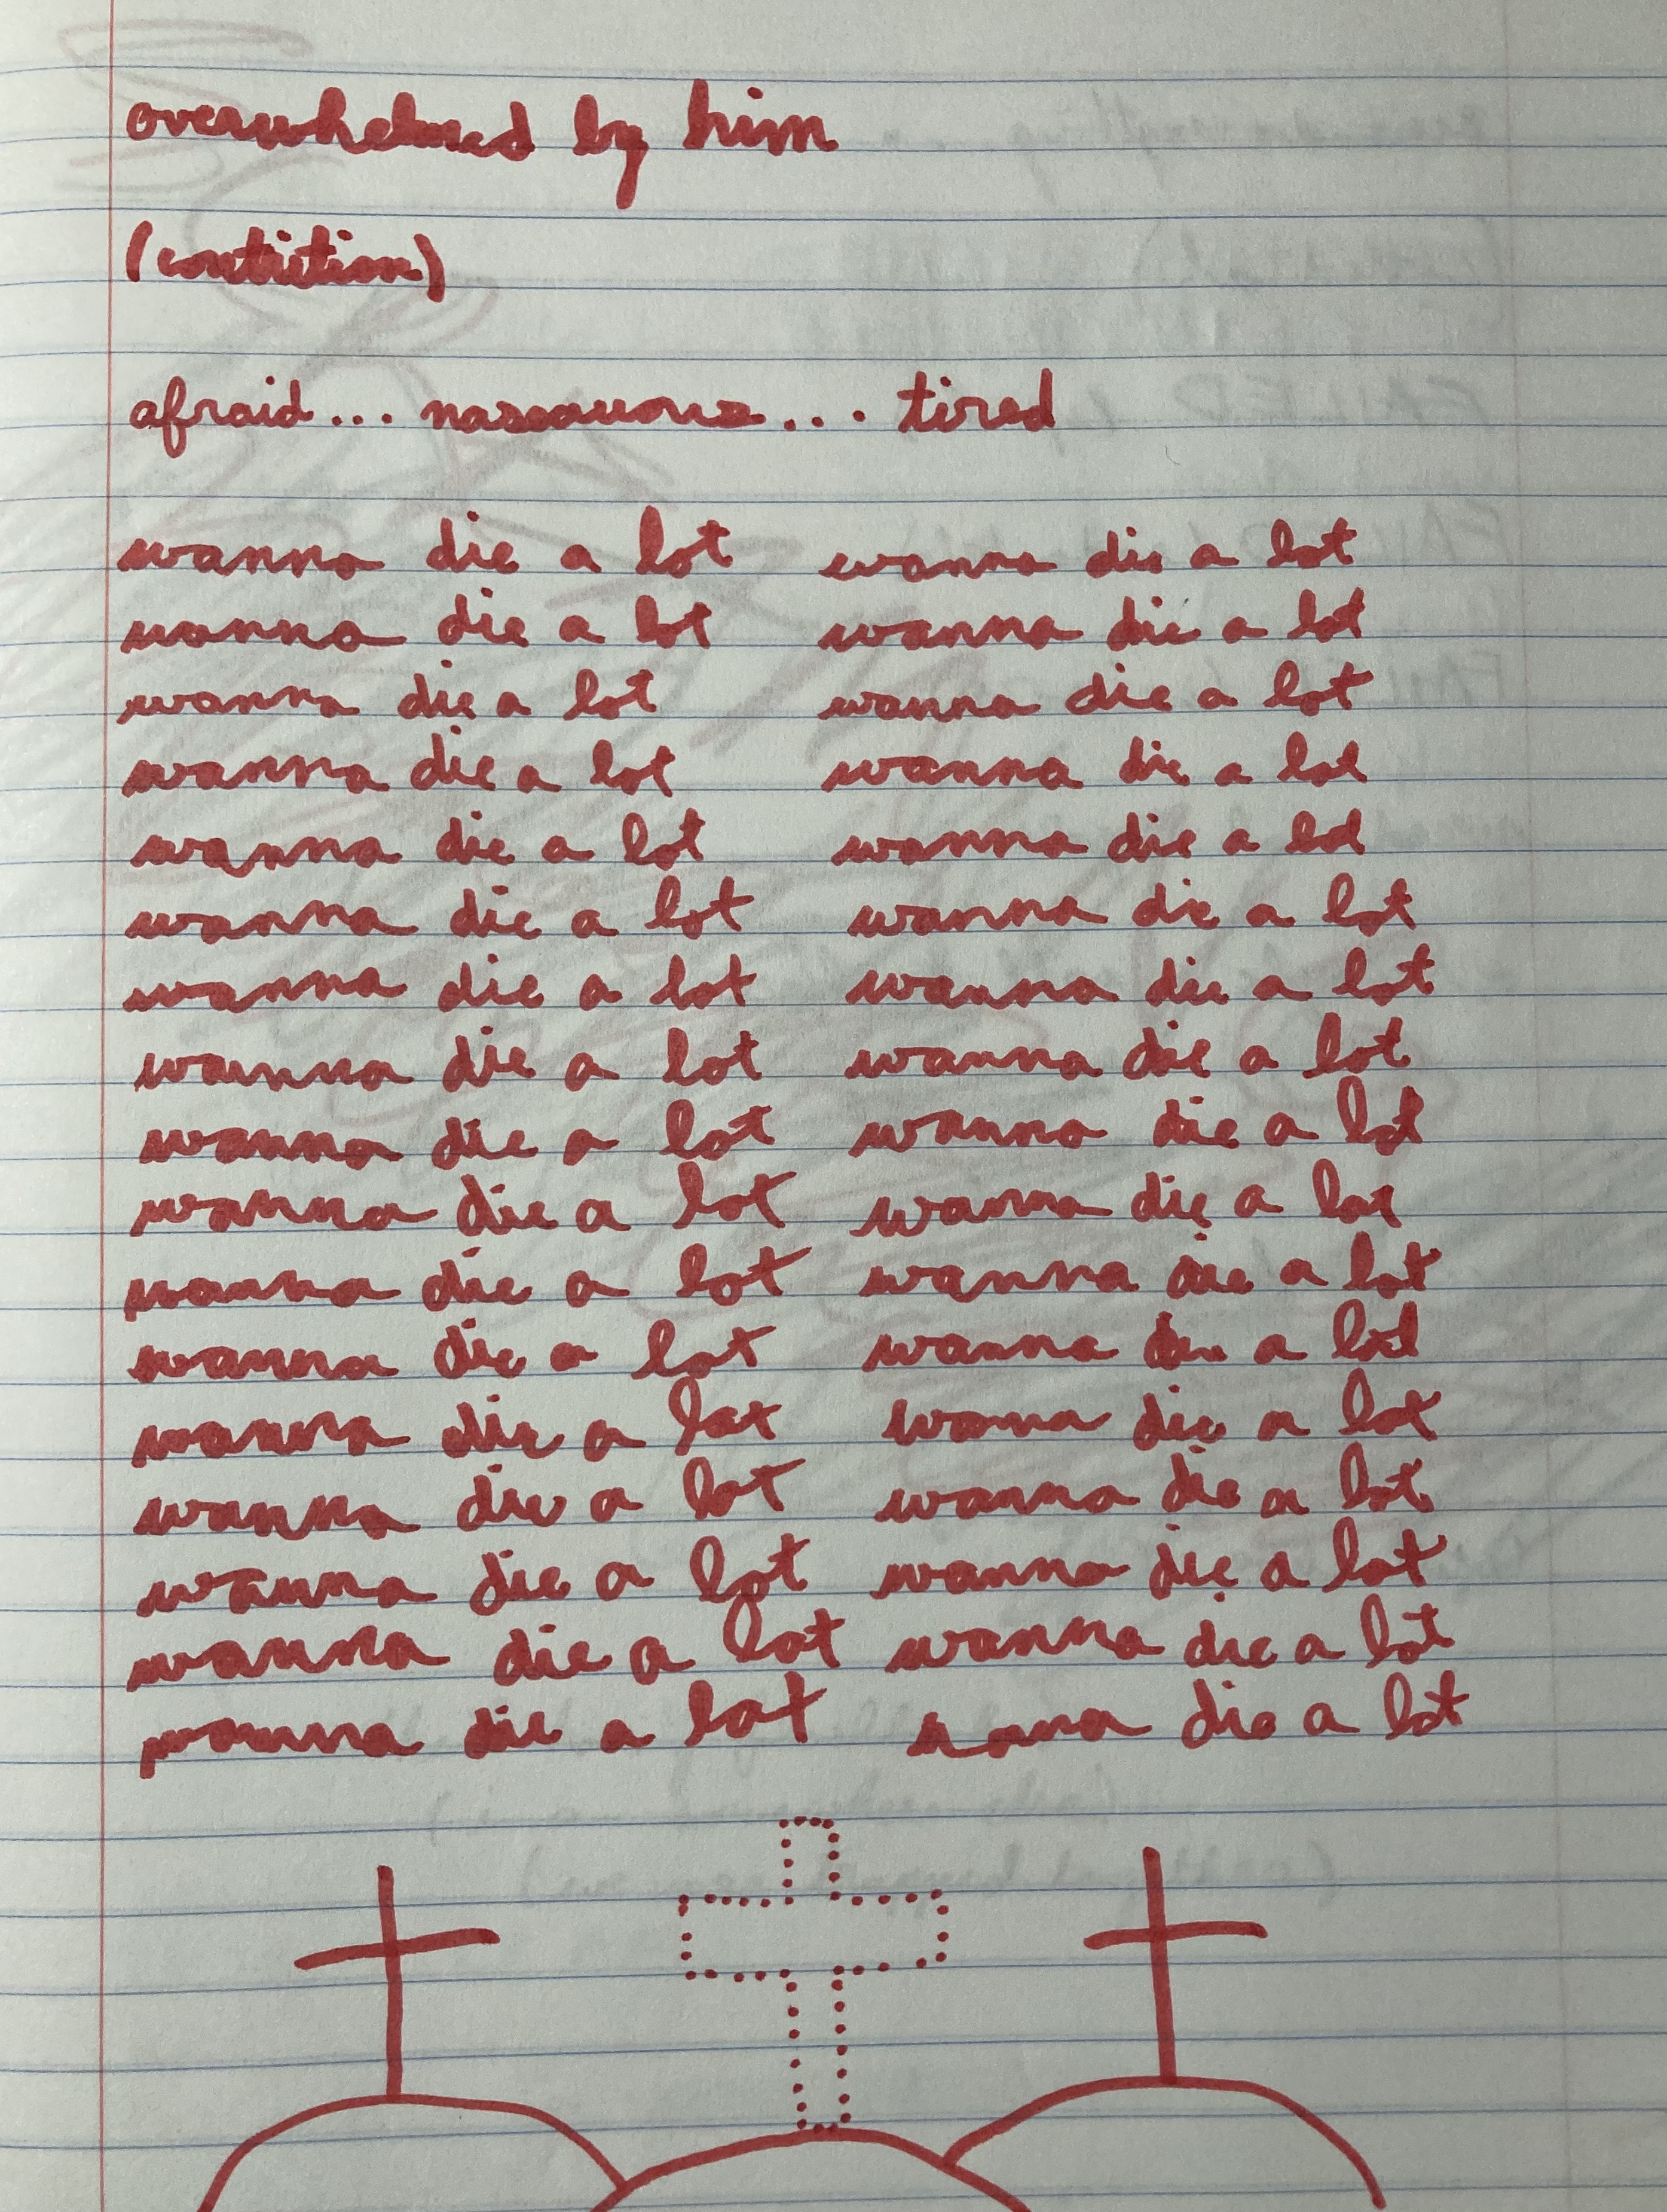 overwhelmed by him
(contrition)
afraid... ... tired
wanna die a lot wanna die a lot
wanna die a lot wanna die a lot
wanna die a lot wanna die a lot
wanna die a lot wanna die a lot
wanna die a lot wanna die a lot
wanna die a lot wanna die a lot
wanna die a lot wanna die a lot
wanna die a lot wanna die a lot
wanna die a lot wanna die a lot
wanna die a lot wanna die a lot
wanna die a lot wanna die a lot
wanna die a lot wanna die a lot
wanna die a lot wanna die a lot
wanna die a lot wanna die a lot
wanna die a lot wanna die a lot
wanna die a lot wanna die a lot
wanna die a lot wanna die a lot